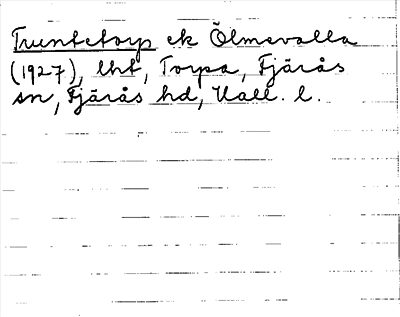 Truntetorp ek Ölmevalla
(1927), lht, Torpa, Fjärås
sn, Fjärås hd, Hall. l.